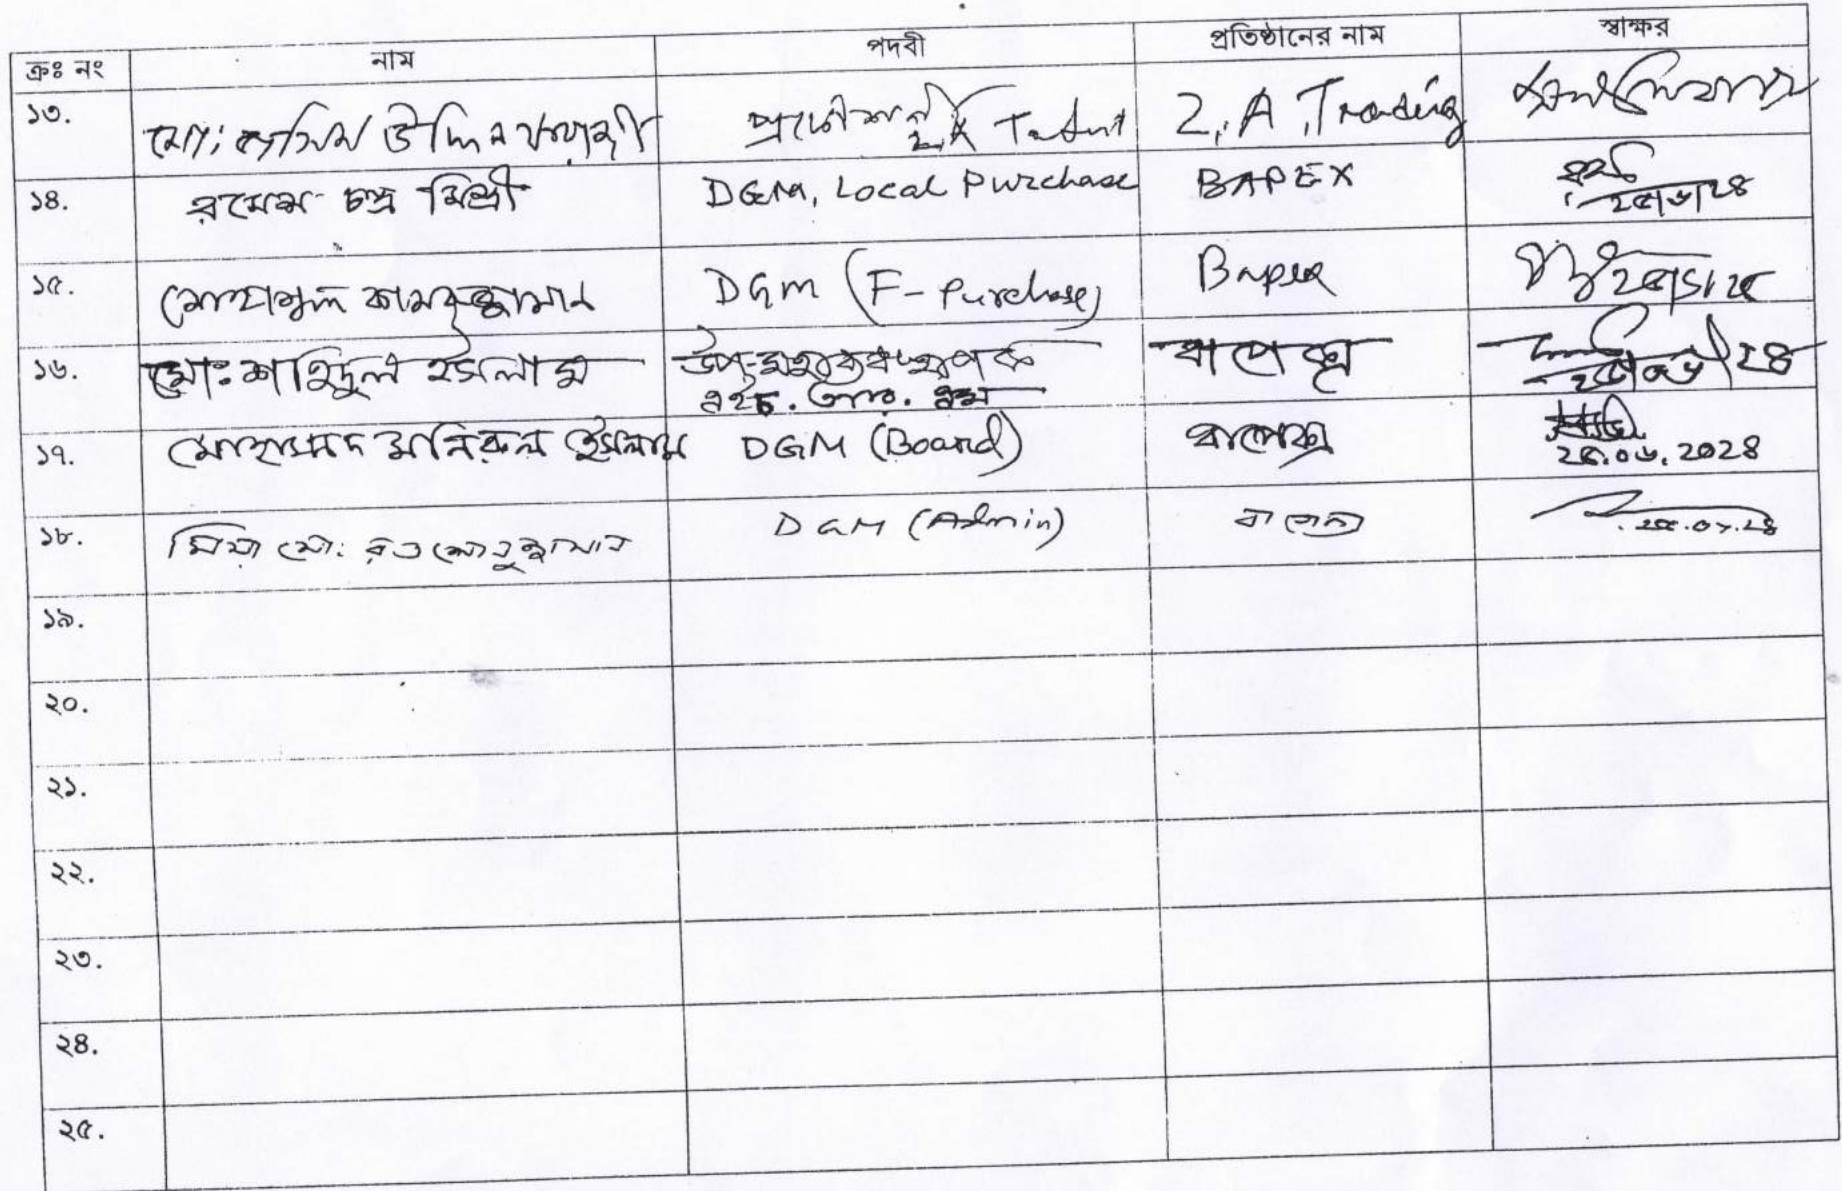 ক্রঃ নং নাম পদবী প্রতিষ্ঠানের নাম স্বাক্ষর
১৩. মো: জসিম উদ্দিন 2, A Trading
১৪. রমেশ চন্দ্র মিস্ত্রী DGM, Local Purchase BAPEX ২৫/৬/২৪
১৫. মোহাম্মদ কামরুজ্জামান DGM (F-Purchase) Bapex
১৬. মোঃ শাহিদুল ইসলাম উপ-মহাব্যবস্থাপক বাপেক্স
এইচ. আর. এম
১৭. মোহাম্মদ মনিরুল ইসলাম DGM (Board) বাপেক্স
২৫.০৬.২০২৪
১৮. মিয়া মো: DGM (Admin) বাপেক্স
১৯.
২০.
২১.
২২.
২৩.
২৪.
২৫.